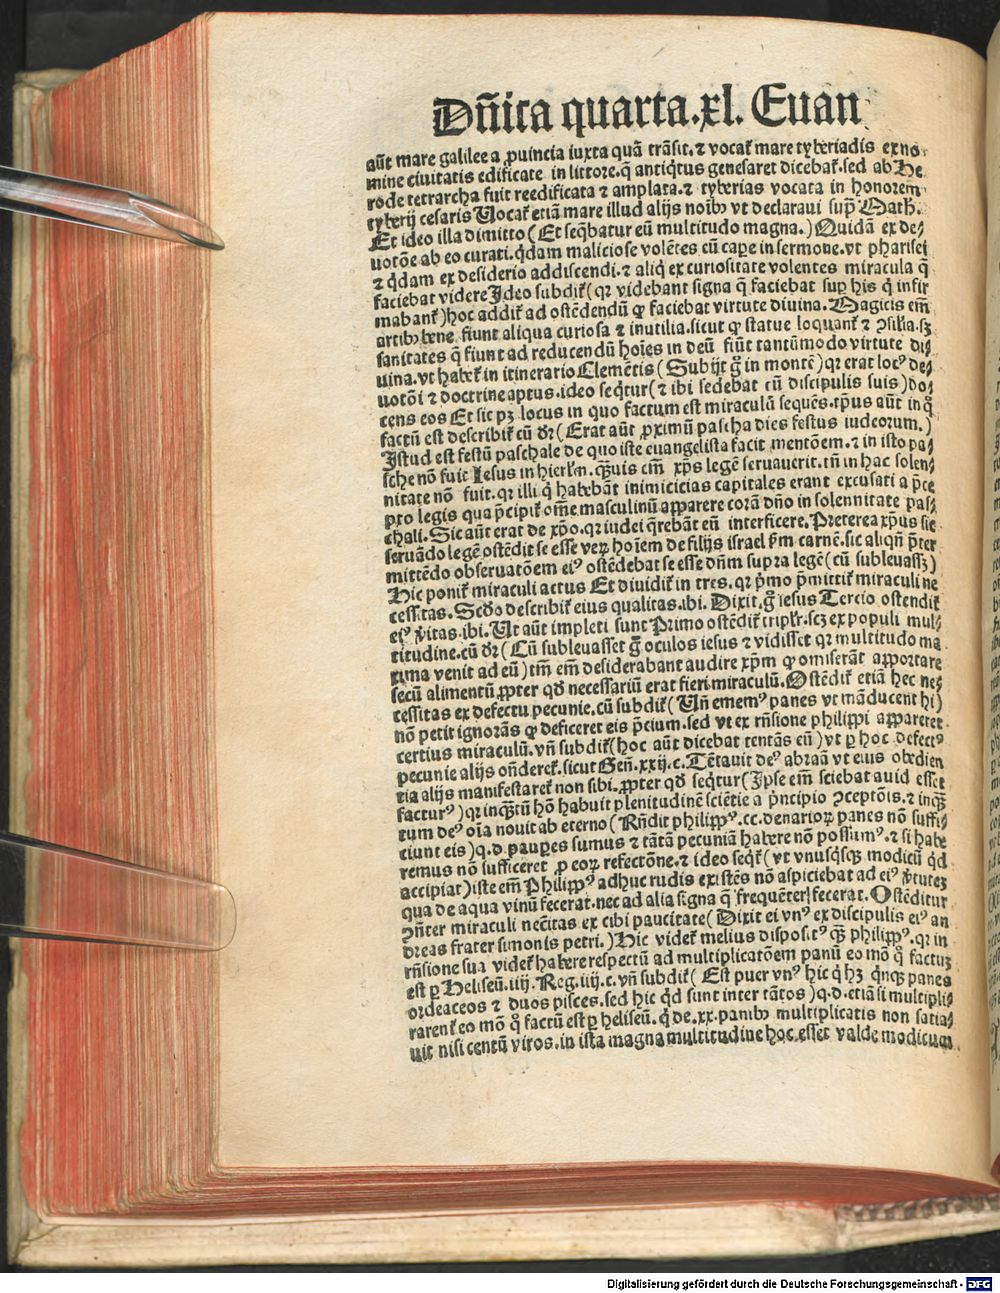 Dn̄ica quarta.xl. Euan
aūt mare galilee a ꝓuincia iuxta quā trāsit.⁊ vocať mare tyberiadis ex no⸗
mine ciuitatis edificate in littore.q̄ antiq̇tus genesaret dicebať.sed ab He
rode tetrarcha fuit reedificata ⁊ amplata.⁊ tyberias vocata in honorem
tyberij cesaris Uocať etiā mare illud alijs noīb⁹ vt declaraui sup̄ Math.
Et ideo illa dimitto (Et seq̄batur eū multitudo magna.) Quidā ex de⸗
uotōe ab eo curati. q̇dam maliciose volētes eū caꝑe in sermone.vt pharisei
⁊ q̇dam ex desiderio addiscendi.⁊ aliq̇ ex curiositate volentes miracula q̄
faciebat videre Ideo subdiť (qꝛ videbant signa q̄ faciebat suꝑ his q̇ infir
mabanť) hoc addiť ad ostēdendū ꝙ faciebat virtute diuina. Magicis em̄
artib⁹ bene fiunt aliqua curiosa ⁊ inutilia.sicut ꝙ statue loquanť ⁊ ꝯsilia.sꝫ
sanitates q̄ fiunt ad reducendū hoīes in deū fiūt tantūmodo virtute di⸗
uina.vt habeť in itinerario Clemētis (Subijt g̊ in montē) qꝛ erat loc⁹ de⸗
uotōi ⁊ doctrine aptus.ideo seq̇tur (⁊ ibi sedebat cū discipulis suis) do⸗
cens eos Et sic pꝫ locus in quo factum est miraculū sequēs.tꝑus aūt in q̊
factū est describiť cū dꝛ (Erat aūt ꝓximū pascha dies festus iudeorum.)
Istud est festū paschale de quo iste euangelista facit mentōem.⁊ in isto pa⸗
sche nō fuit Iesus in hierl̄m.q̄uis em̄ xp̄s legē seruauerit.tn̄ in hac solen⸗
nitate nō fuit.qꝛ illi q̇ habebāt inimicicias capitales erant excusati a p̄ce
pto legis qua p̄cipiť om̄e masculinū apparere corā dn̄o in solennitate pas⸗
chali. Sic aūt erat de xp̄o.qꝛ iudei q̄rebāt eū interficere. Preterea xp̄us sic
seruādo legē ostēdit se esse veꝝ hoīem de filijs israel ꝑm carnē.sic aliqn̄ p̄ter
mittēdo obseruatōem ei⁹ ostēdebat se esse dn̄m supra legē (cū subleuassꝫ)
Hic poniť miraculi actus Et diuidiť in tres. qꝛ p̄mo p̄mittiť miraculi ne
cessitas. Scd̄o describiť eius qualitas.ibi. Dixit.g̊ iesus Tercio ostendiť
ei⁹ v̄itas.ibi. Ut aūt impleti sunt Primo ostēdiť tripl̄r.scꝫ ex populi mul⸗
titudine.cū dꝛ (Cū subleuasset g̊ oculos iesus ⁊ vidisset qꝛ multitudo ma
xima venit ad eū) tm̄ em̄ desiderabant audire xp̄m ꝙ omiserāt apportare
secū alimentū.ꝓpter qd̄ necessariū erat fieri miraculū. Ostēdiť etiā hec ne⸗
cessitas ex defectu pecunie.cū subdiť (Un̄ ememꝰ panes vt māducent hi)
nō petit ignorās ꝙ deficeret eis p̄cium.sed vt ex rn̄sione philippi appareret
certius miraculū.vn̄ subdiť (hoc aūt dicebat tentās eū) vt ꝑ hoc defect⁹
pecunie alijs on̄dereť.sicut Gen̄.xxij.c. Tētauit de⁹ abraā vt eius obedien
tia alijs manifestareť non sibi.ꝓpter qd̄ seq̇tur (Ipse em̄ sciebat quid esset
factur⁹) qꝛ inq̄tū hō habuit plenitudinē sciētie a p̄ncipio ꝯceptōis.⁊ inq̄
tum de⁹ oīa nouit ab eterno (Rn̄dit philipp⁹.cc.denarioꝝ panes nō suffi⸗
ciunt eis) q.d.pauꝑes sumus ⁊ tātā pecuniā habere nō possum⁹.⁊ si habe
remus nō sufficeret ꝓ eoꝝ refectōne.⁊ ideo seq̇ť (vt vnusq̇sqꝫ modicū q̇d
accipiat) iste em̄ Philipp⁹ adhuc rudis existēs nō aspiciebat ad ei⁹ v̄tutez
qua de aqua vinū fecerat.nec ad alia signa q̄ frequēter fecerat. Ostēditur
ꝯn̄ter miraculi nec̄itas ex cibi paucitate (Dixit ei vn⁹ ex discipulis ei⁹ an
dreas frater simonis petri.) Hic videť melius disposit⁹ q̄ philipp⁹.qꝛ in
rn̄sione sua videť habere respectū ad multiplicatōem panū eo mō q̊ factuꝫ
est ꝑ Heliseū.iiij. Reg.iiij.c. vn̄ subdiť ( Est puer vn⁹ hic q̇ hꝫ q̇nqꝫ panes
ordeaceos ⁊ duos pisces.sed hic q̇d sunt inter tātos) q.d.etiā si multipli⸗
carenť eo mō q̊ factū est ꝑ heliseū. q̇ de.xx.panib⁹ multiplicatis non satia⸗
uit nisi centū viros.in ista magna multitudine hoc esset valde modicum.
Digitalisierung gefördert durch die Deutsche Forschungsgemeinschaft - DFG